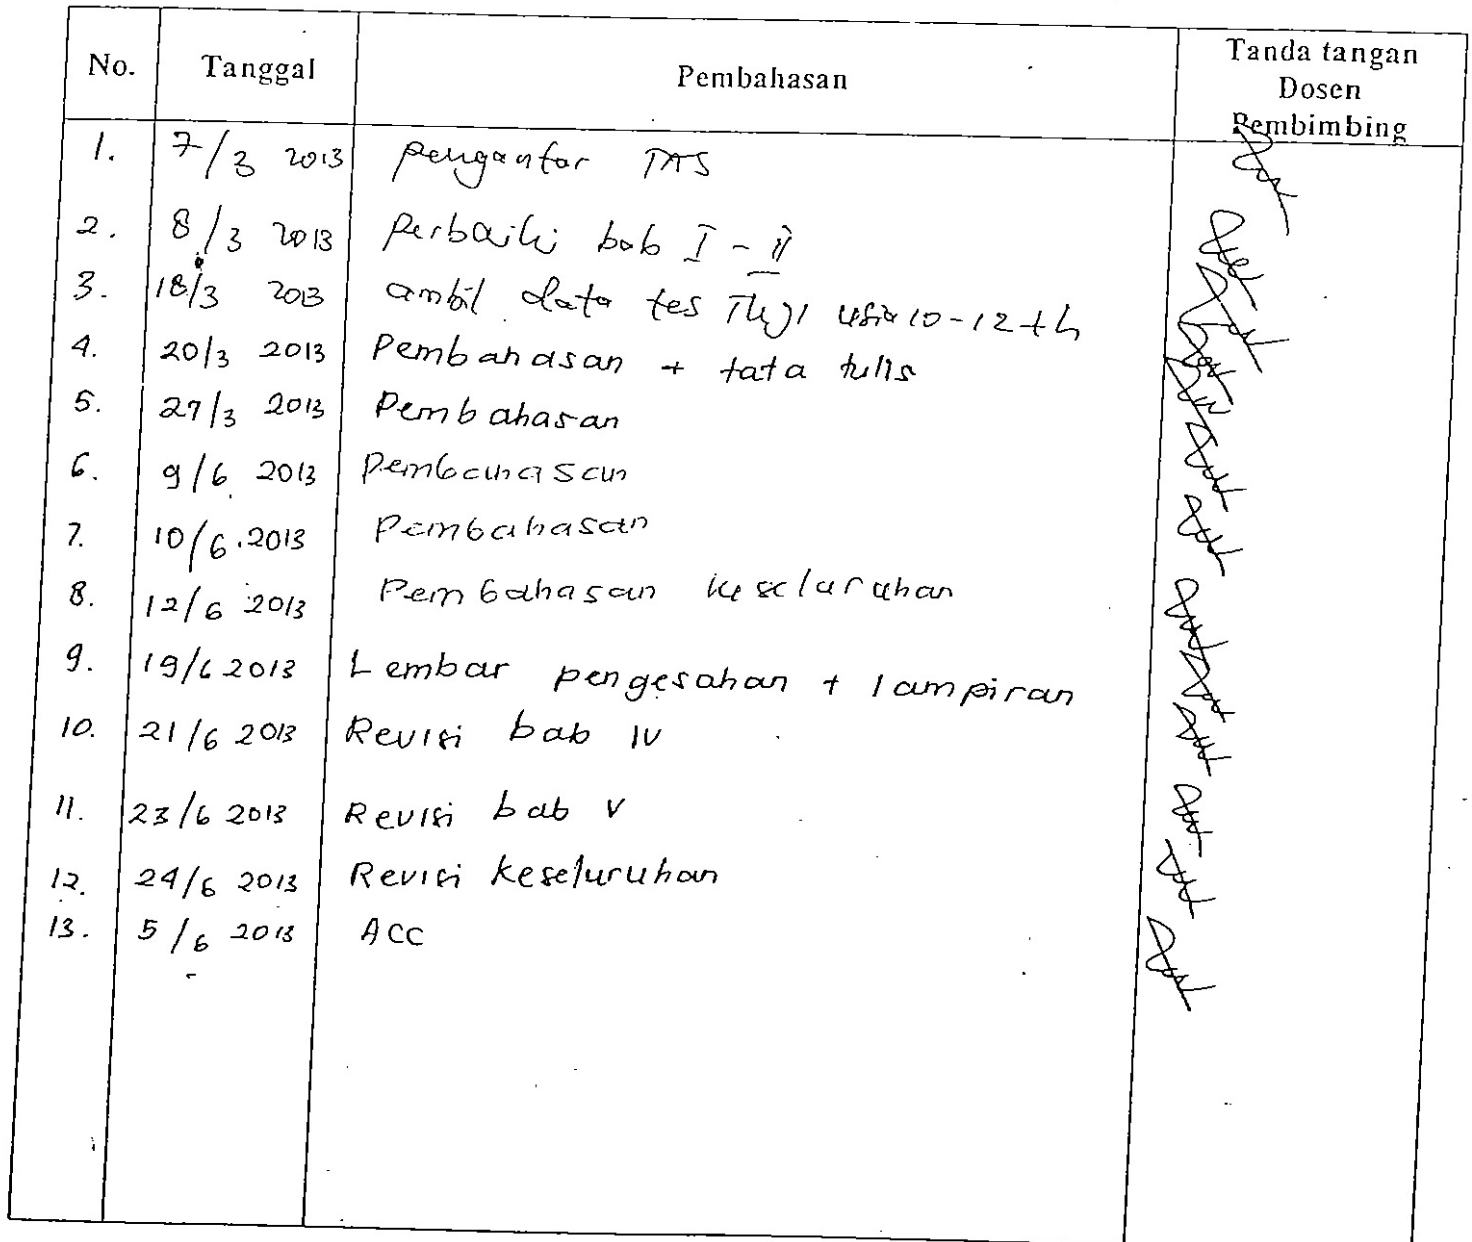 No. Tanggal Pembahasan Tanda tangan
Dosen
Pembimbing
1. 7/3 2013 pengantar TAS
2. 8/3 2013 perbaiki bab I - II
3. 18/3 2013 ambil data tes TKJI usia 10-12 th
4. 20/3 2013 Pembahasan + tata tulis
5. 27/3 2013 Pembahasan
6. 9/6 2013 Pembahasan
7. 10/6.2013 Pembahasan
8. 12/6 2013 Pembahasan keseluruhan
9. 19/6 2013 Lembar pengesahan + lampiran
10. 21/6 2013 Revisi bab IV
11. 23/6 2013 Revisi bab V
12. 24/6 2013 Revisi keseluruhan
13. 5/6 2013 ACC